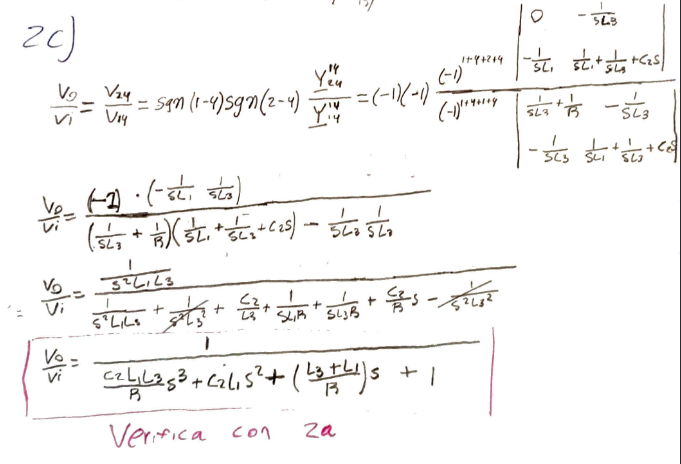 2c)
Vo/Vi = V24/V14 = sgn(1-4)sgn(2-4) Y^14_24/Y^14_14 = (-1)(-1) (-1)^(1+4+2+4) |0 -1/SL3; -1/SL1 1/SL1+1/SL3+C2S| / (-1)^(1+4+1+4) |1/SL3+1/R -1/SL3; -1/SL3 1/SL1+1/SL3+C2S|
Vo/Vi = (-1)·(-1/SL1 1/SL3) / (1/SL3 + 1/R)(1/SL1 + 1/SL3 + C2S) - 1/SL3 1/SL3
= Vo/Vi = 1/S²L1L3 / 1/S²L1L3 + 1/S²L3² + C2/L3 + 1/SL1R + 1/SL3R + C2/R S - 1/S²L3²
Vo/Vi = 1 / C2L1L3/R S³ + C2L1S² + (L3+L1/R)S + 1
Verifica con 2a